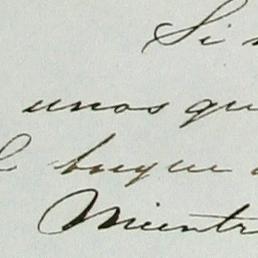 Si
unos qu
buque
Mientr